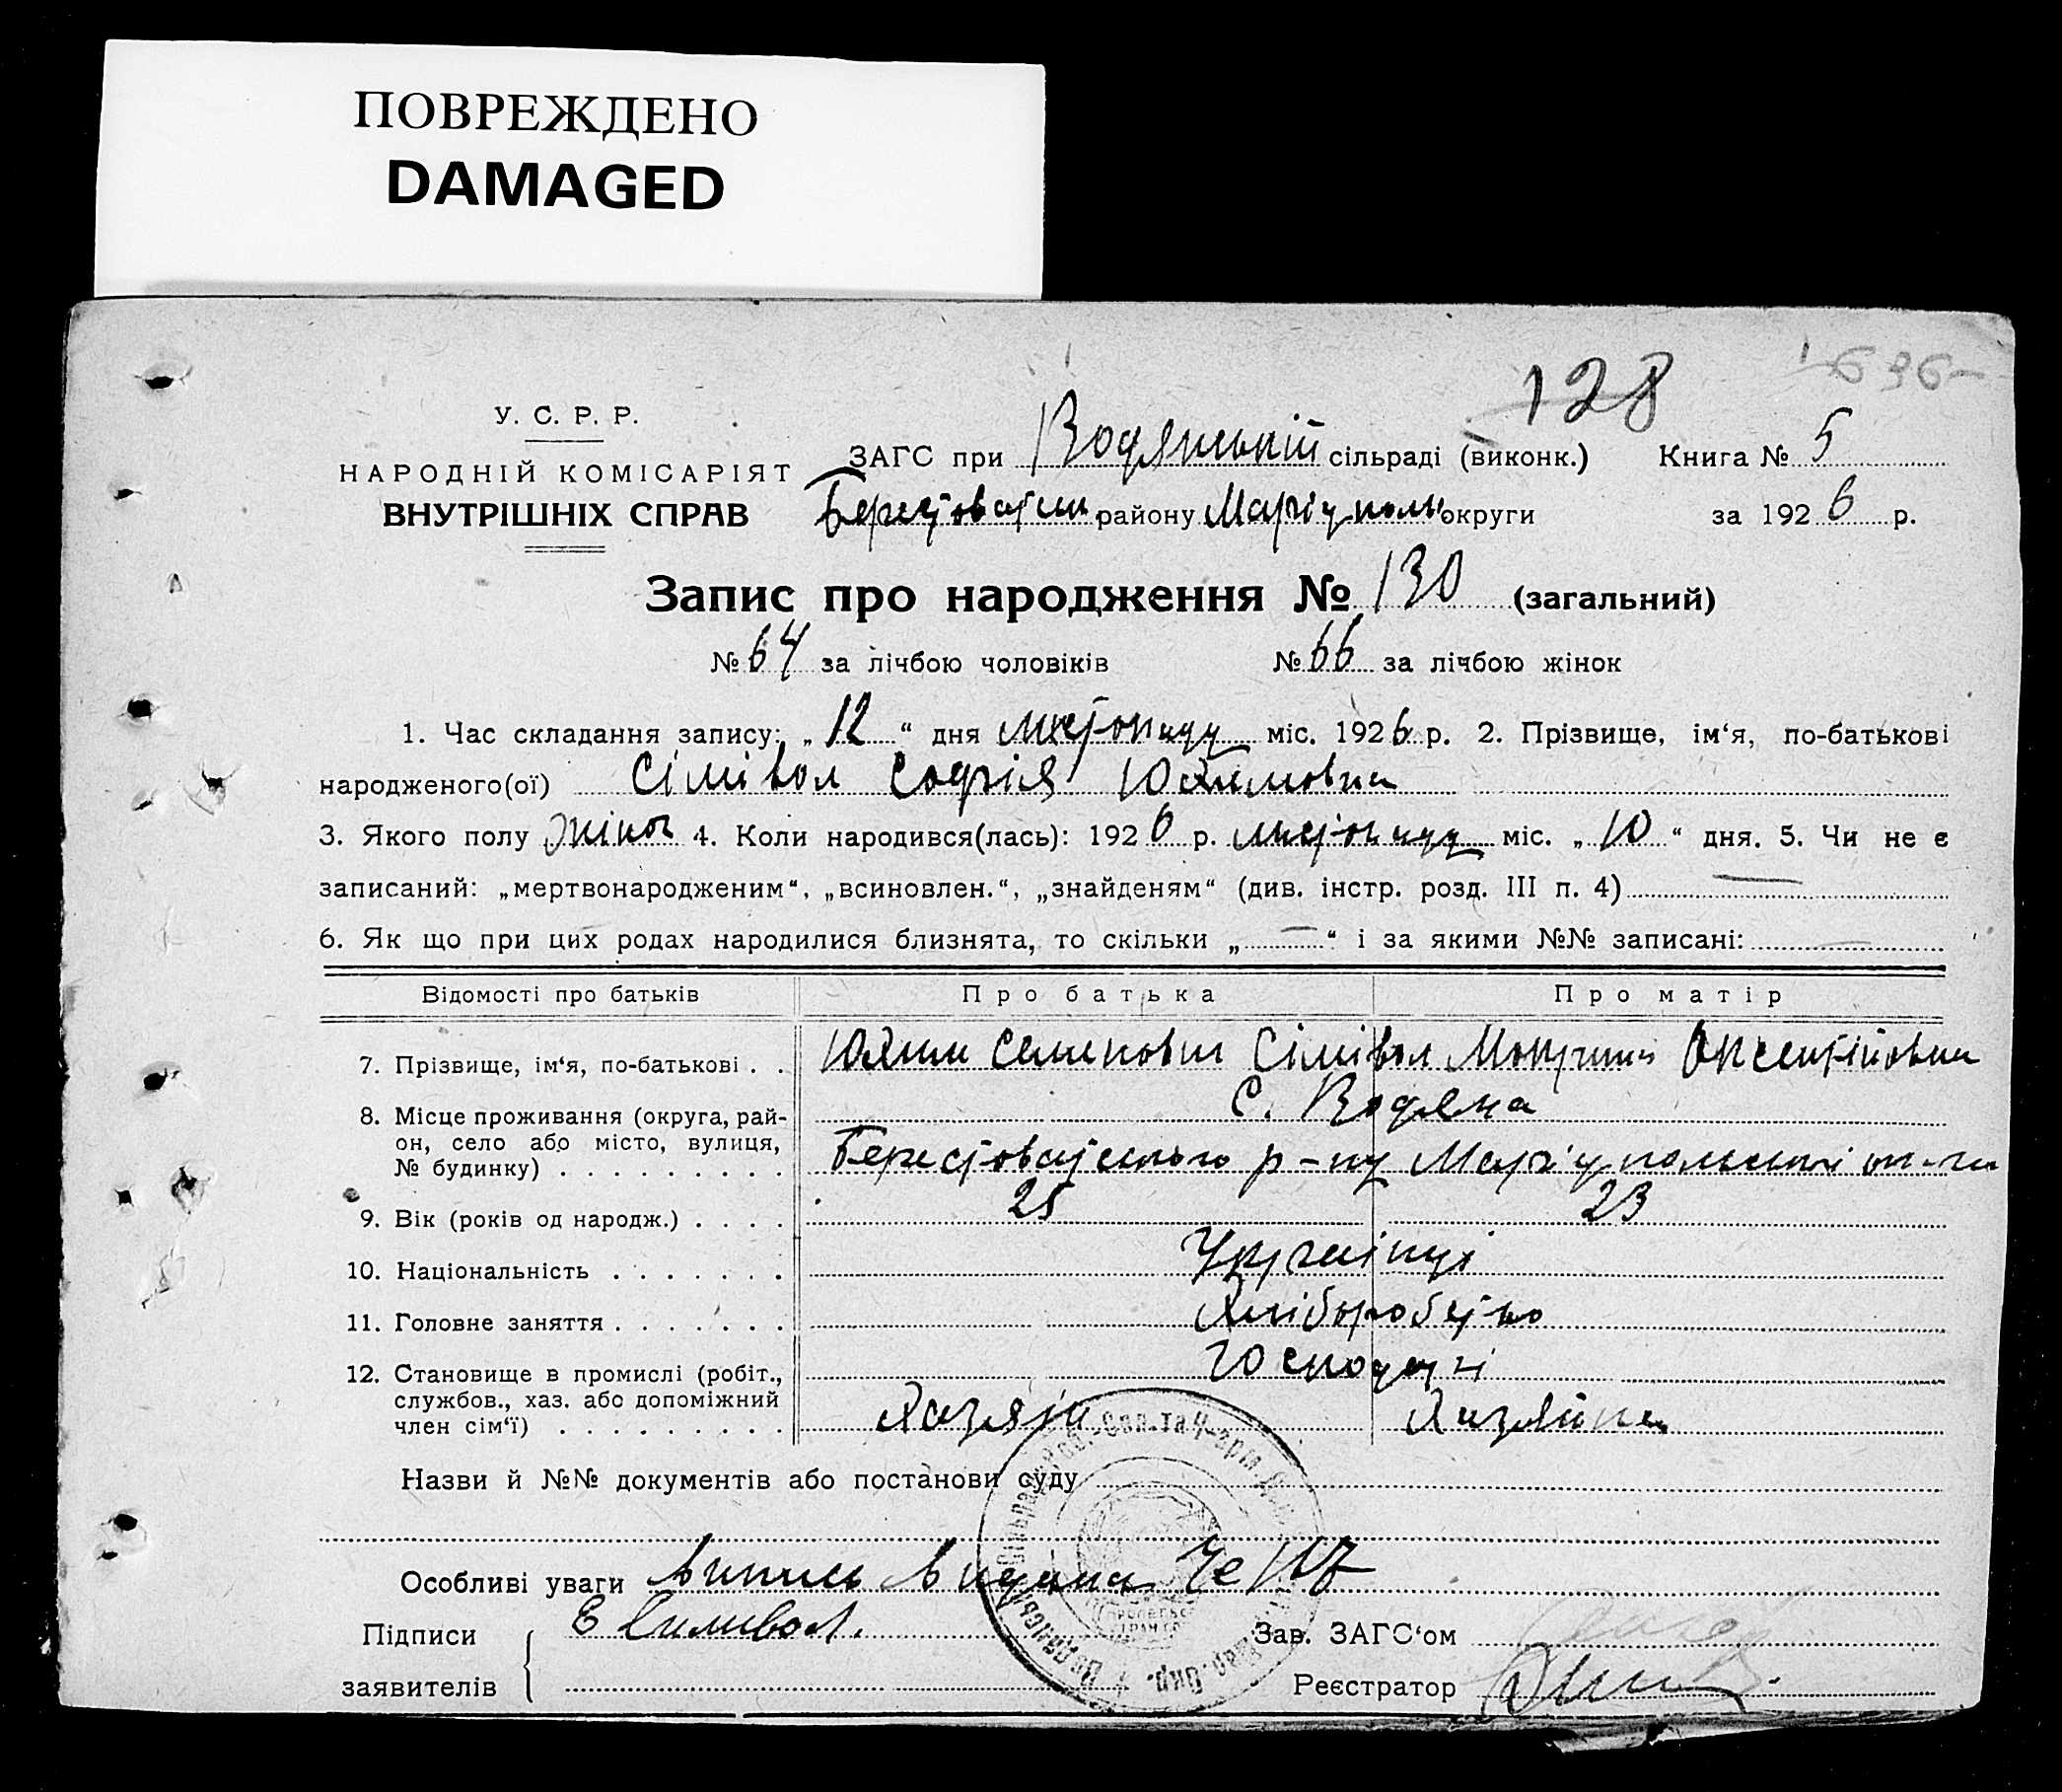 ПОВРЕЖДЕНО
DAMAGED
128
696
У. С. Р. Р.
НАРОДНІЙ КОМІСАРІЯТ
ВНУТРІШНІХ СПРАВ
ЗАГС при Водянській сільраді (виконк.) Книга № 5
Берестоватськ району Маріуполь округи за 1926 р.
Запис про народження № 130 (загальний)
№ 64 за лічбою чоловіків № 66 за лічбою жінок
1. Час складання запису: „12“ дня листопаду міс. 1926 р. 2. Прізвище, ім‘я, по-батькові
народженого(ої) Сімівол Софія Юхимовна
3. Якого полу жіноч 4. Коли народився(лась): 1926 р. листопаду міс. „10“ дня. 5. Чи не є
записаний: „мертвонародженим“, „всиновлен.“, „знайденям“ (див. інстр. розд. III п. 4) —
6. Як що при цих родах народилися близнята, то скільки „—“ і за якими №№ записані: —
Відомості про батьків Про батька Про матір
7. Прізвище, ім‘я, по-батькові . . Юхим Семенович Сімівол Оксентійовна
8. Місце проживання (округа, рай-
он, село або місто, вулиця,
№ будинку) . . . . . . . . .
с. Водяна
Берестоватського р-ну Маріупольскої ок-ги
9. Вік (років од народж.) . . . . 25 23
10. Національність . . . . . . . Українці
11. Головне заняття . . . . . . . Хліборобство
12. Становище в промислі (робіт.,
службов., хаз. або допоміжний
член сім‘ї) . . . . . . . . .
Господарі
Хазяїн Хазяйка
Назви й №№ документів або постанови суду
Особливі уваги Випись видана
Підписи Е Симивол.
заявителів
Зав. ЗАГС‘ом
Реєстратор